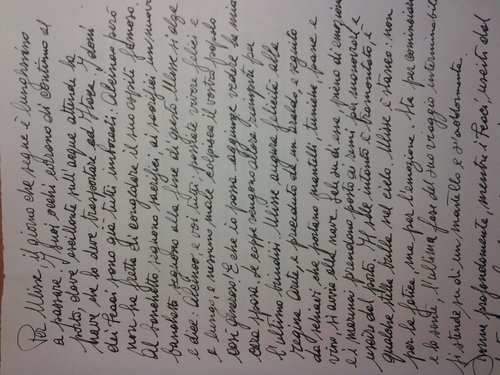 Per Ulisse il giorno che segue è lunghissimo
a passare. I suoi occhi corrono di continuo al
porto, dove oscillante sull'acqua attende la
nave che lo deve trasportare ad Itaca. I doni
dei Feaci sono già tutti imbarcati. Alcinoo però
non ha fretta di congedare il suo ospite famoso.
Al banchetto seguono sacrifici, ai sacrifici un nuovo
banchetto; sicché alla fine di questo Ulisse si alza
e dice: Alcinoo, e voi tutti, possiate vivere felici e
a lungo, e nessun male colpisca il vostro popolo
così generoso. E che io possa giungere vedere la mia
cara sposa. Le coppe vengono allora riempite per
l'ultimo brindisi. Ulisse augura felicità alla
regina Arete, e preceduto da un araldo, e seguito
da schiavi che portano mantelli, tuniche, pane e
vino si avvia alla nave. Sale su di un
e i marinai prendono posto ai remi per manovrare
uscire dal porto. Il sole intanto è tramontato, e
qualche stella brilla nel cielo. Ulisse è stanco: non
per la fatica, ma per l'emozione. Sta per cominciare
e lo sente, l'ultima fase del suo viaggio interminabile.
Si stende su di un mantello e s'addormenta.
Dorme profondamente, mentre i Feaci usciti dal